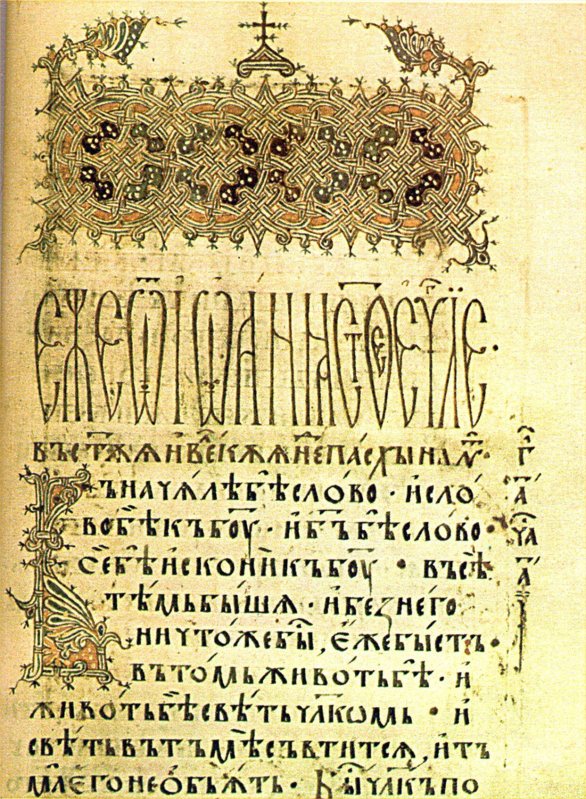 ЕЖЕ Ѿ ІѠАННА СТОЕ ЕУⷢЛЇЕ·
въ ст҃ѫѫ и велⷦ҇ѫѫ нⷣе пасхы на лѵⷮ·
Въ начѧлѣ бѣ слово · и сло
во бѣ къ бо҃у · и б҃ъ бѣ слово ·
се бѣ искони къ бо҃у · въсѣ
тѣмь бышѧ · и без него
ничтоже бы҇, еже быстъ ·
въ томь животь бѣ · и
животь бѣ свѣть чл҃комь · и
свѣть въ тъмѣ свтитсѧ, и тъ
ма его не обьѧть · Бы҇ чл҃къ по
г҃
а҃
ч҃а
а҃